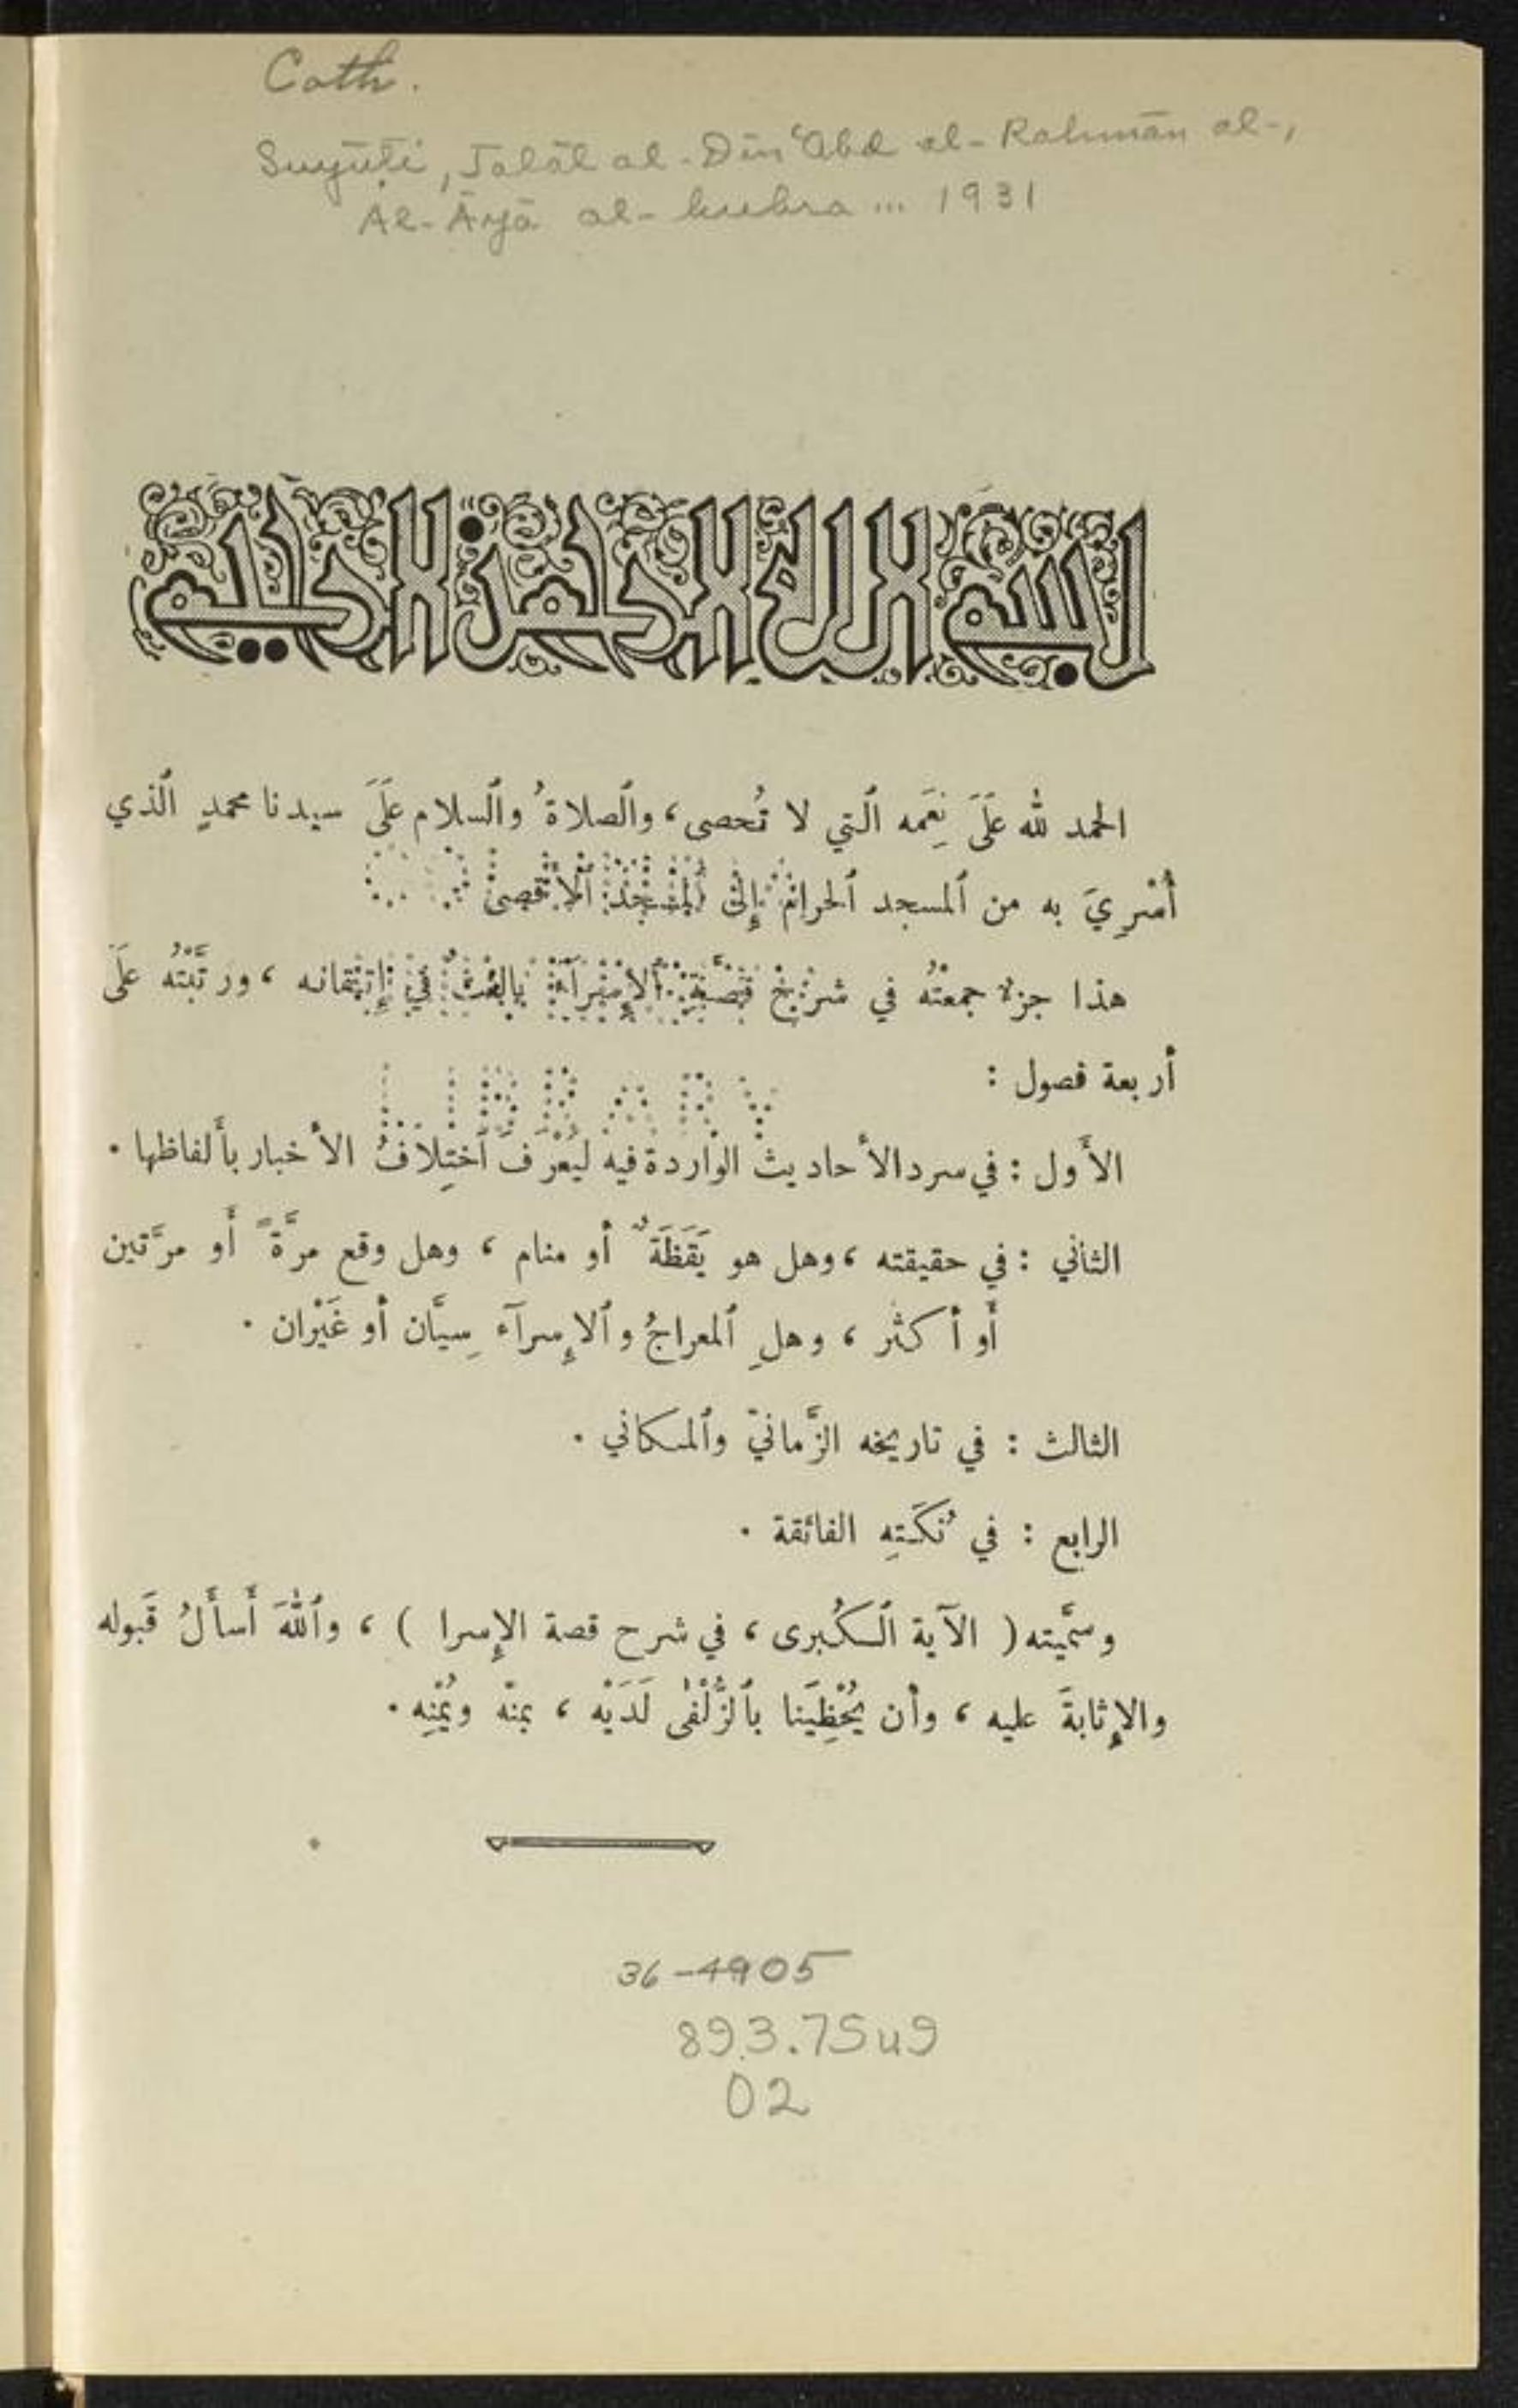 Cath.
Suyūṭī, Jalāl al-Dīn ʿAbd al-Raḥmān al-,
Al-Āyā al-kubra ... 1931
بسم الله الرحمن الرحيم
الحمد لله عَلَى نِعَمه ٱلّتي لا تُحصى، وٱلصلاةُ وٱلسلام عَلَى سيدنا محمدٍ ٱلّذي
أُسْرِيَ به من ٱلمسجد ٱلحرام إِلى ٱلمسجد ٱلأقصى
هذا جزء جمعتُه في شرح قصّة ٱلإِسرآء بالغتُ في إِتقانه، ورتّبتُه عَلَى
أربعة فصول :
الأَول : في سرد الأحاديث الواردة فيه ليُعْرَفَ ٱختِلاَفُ الأخبار بأَلفاظها .
الثاني : في حقيقته، وهل هو يَقَظَةٌ أو منام، وهل وقع مرَّةً أَو مرَّتين
أَو أكثر، وهلِ ٱلمعراجُ وٱلاِسرآء سِيَّان أو غَيْران .
الثالث : في تاريخه الزَّمانيّ وٱلمكاني .
الرابع : في نُكَتِهِ الفائقة .
وسمَّيته ( الآية ٱلكُبرى، في شرح قصة الإِسرا )، وٱللهَ أَسأَلُ قَبوله
والإِثابةَ عليه، وأن يُحْظِيَنا بٱلزُّلْفى لَدَيْه، بمنّه ويُمْنِه .
36-4905
893.7Su9
O2
LIBRARY